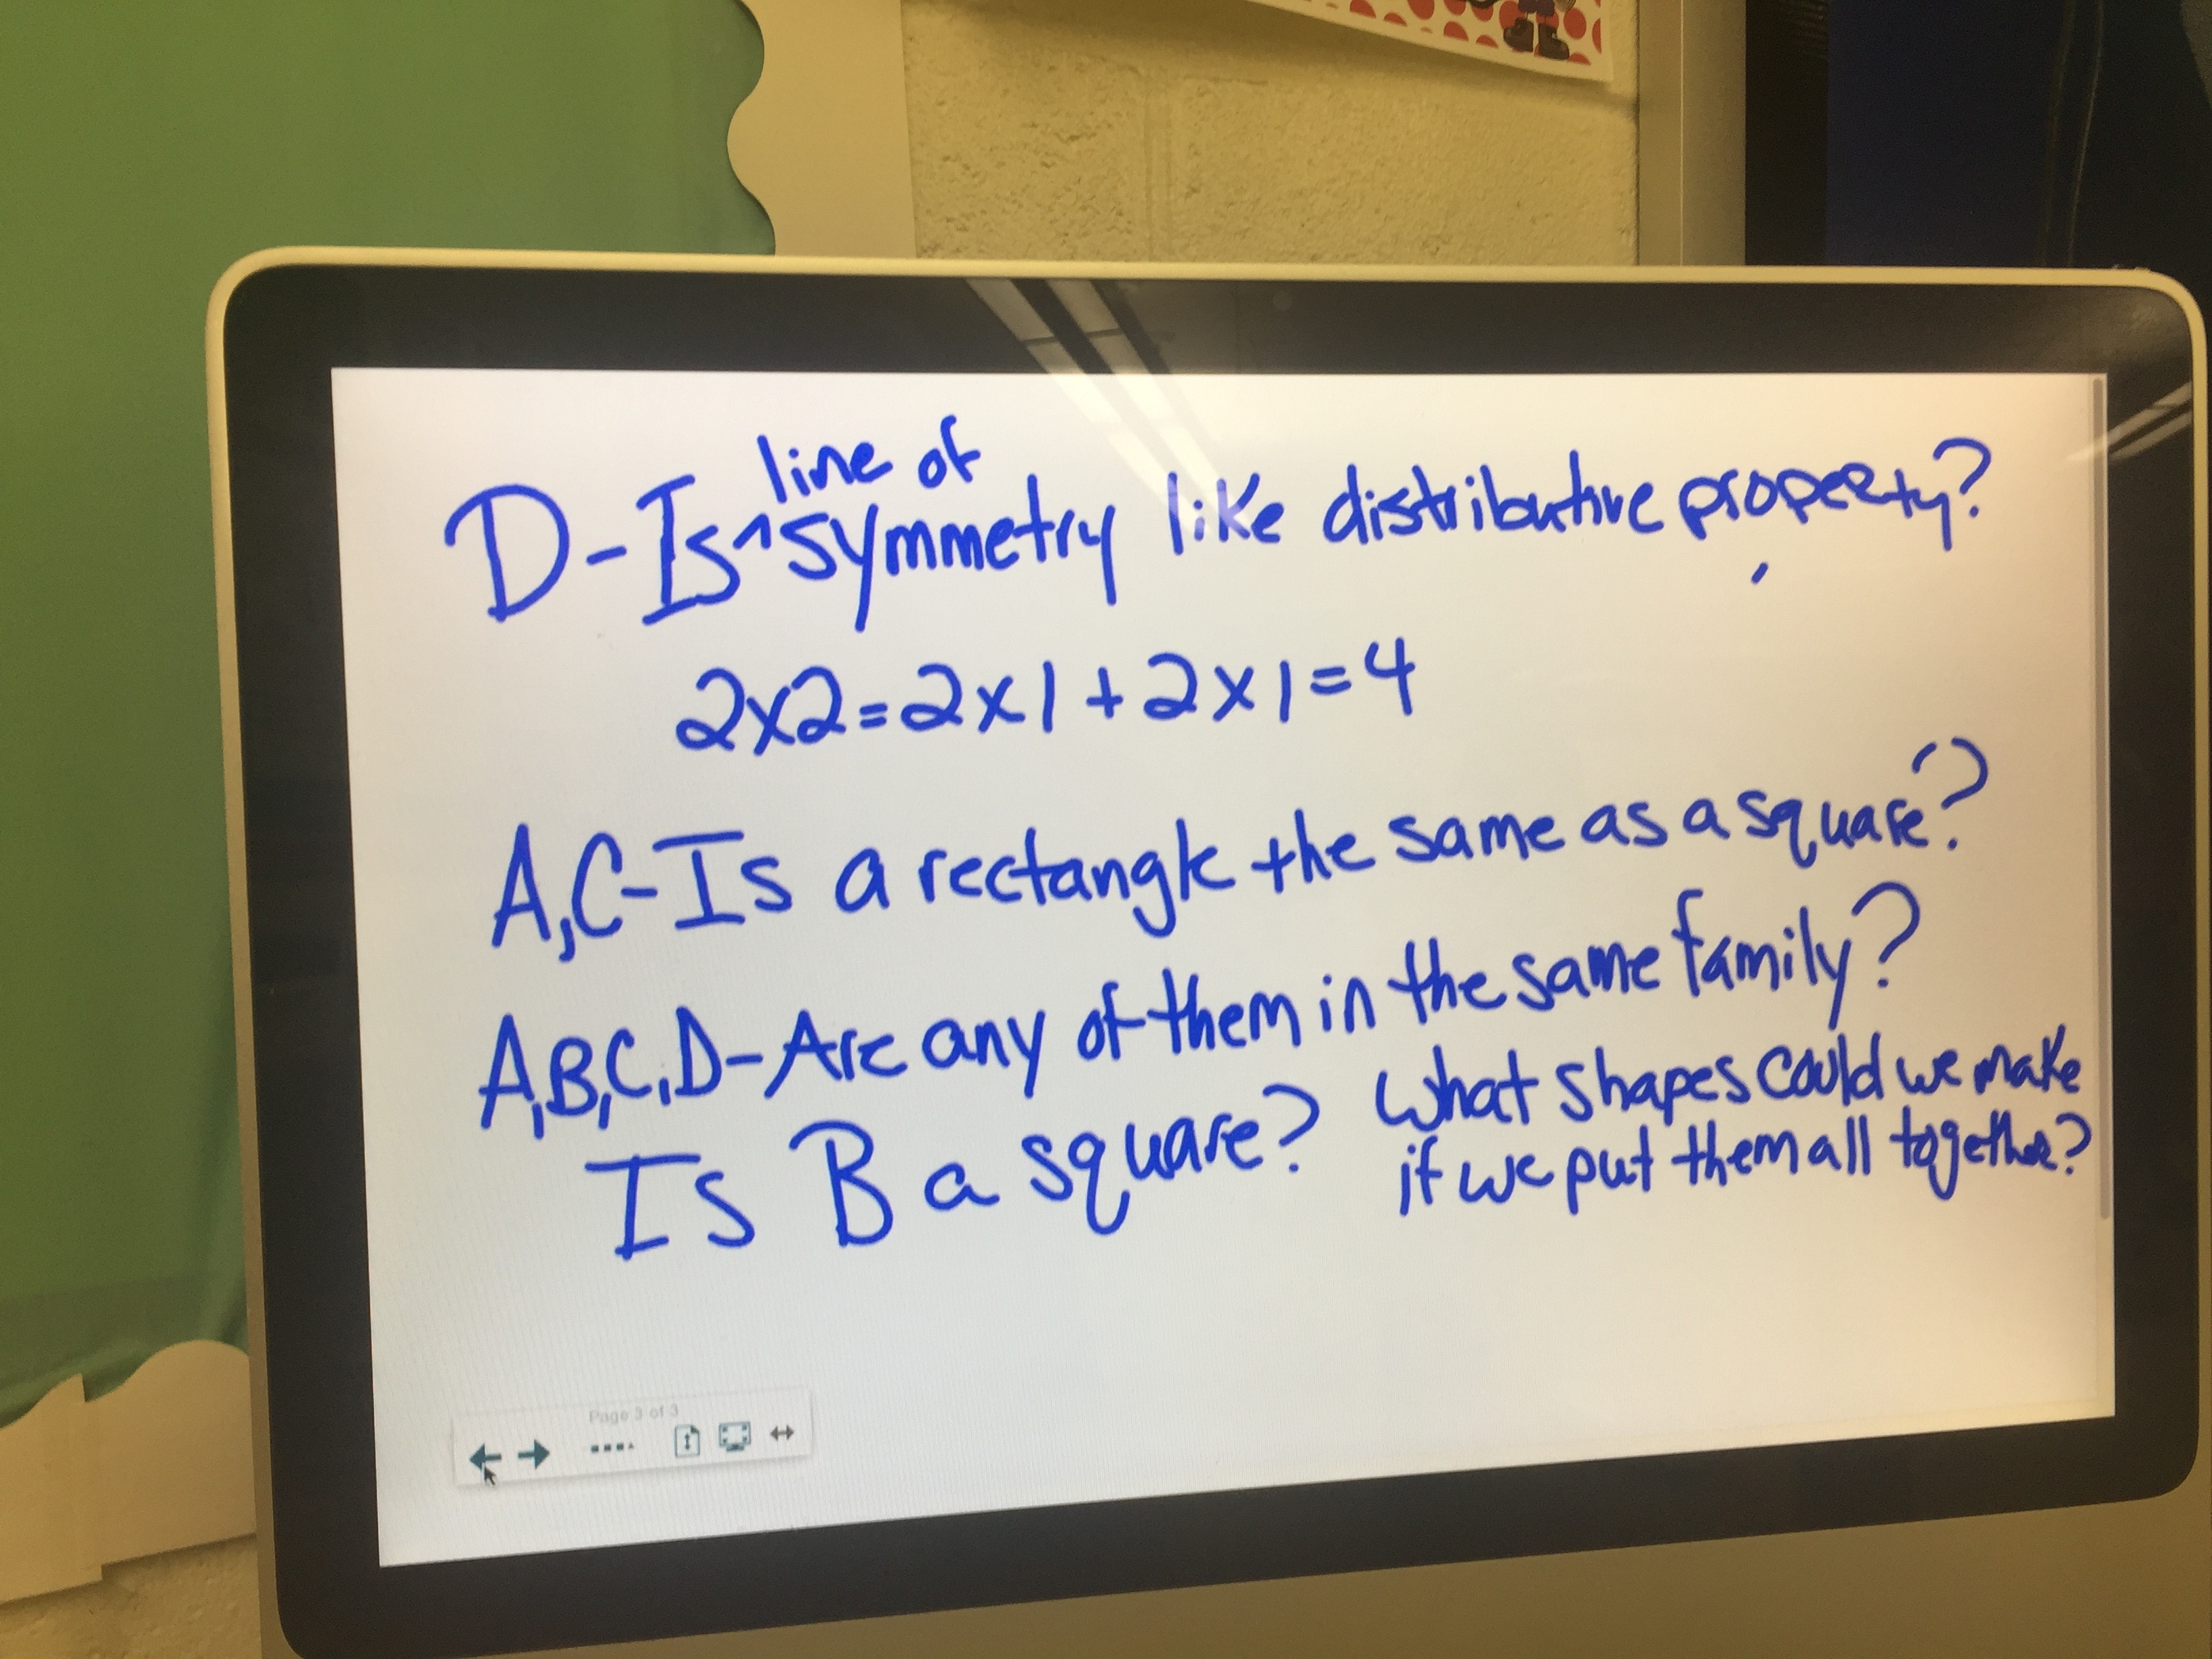 line of
D-Is^symmetry like distributive property?
2x2=2x1+2x1=4
A,C-Is a rectangle the same as a square?
A,B,C,D-Are any of them in the same family?
Is B a square? What shapes could we make
if we put them all together?
Page 3 of 3